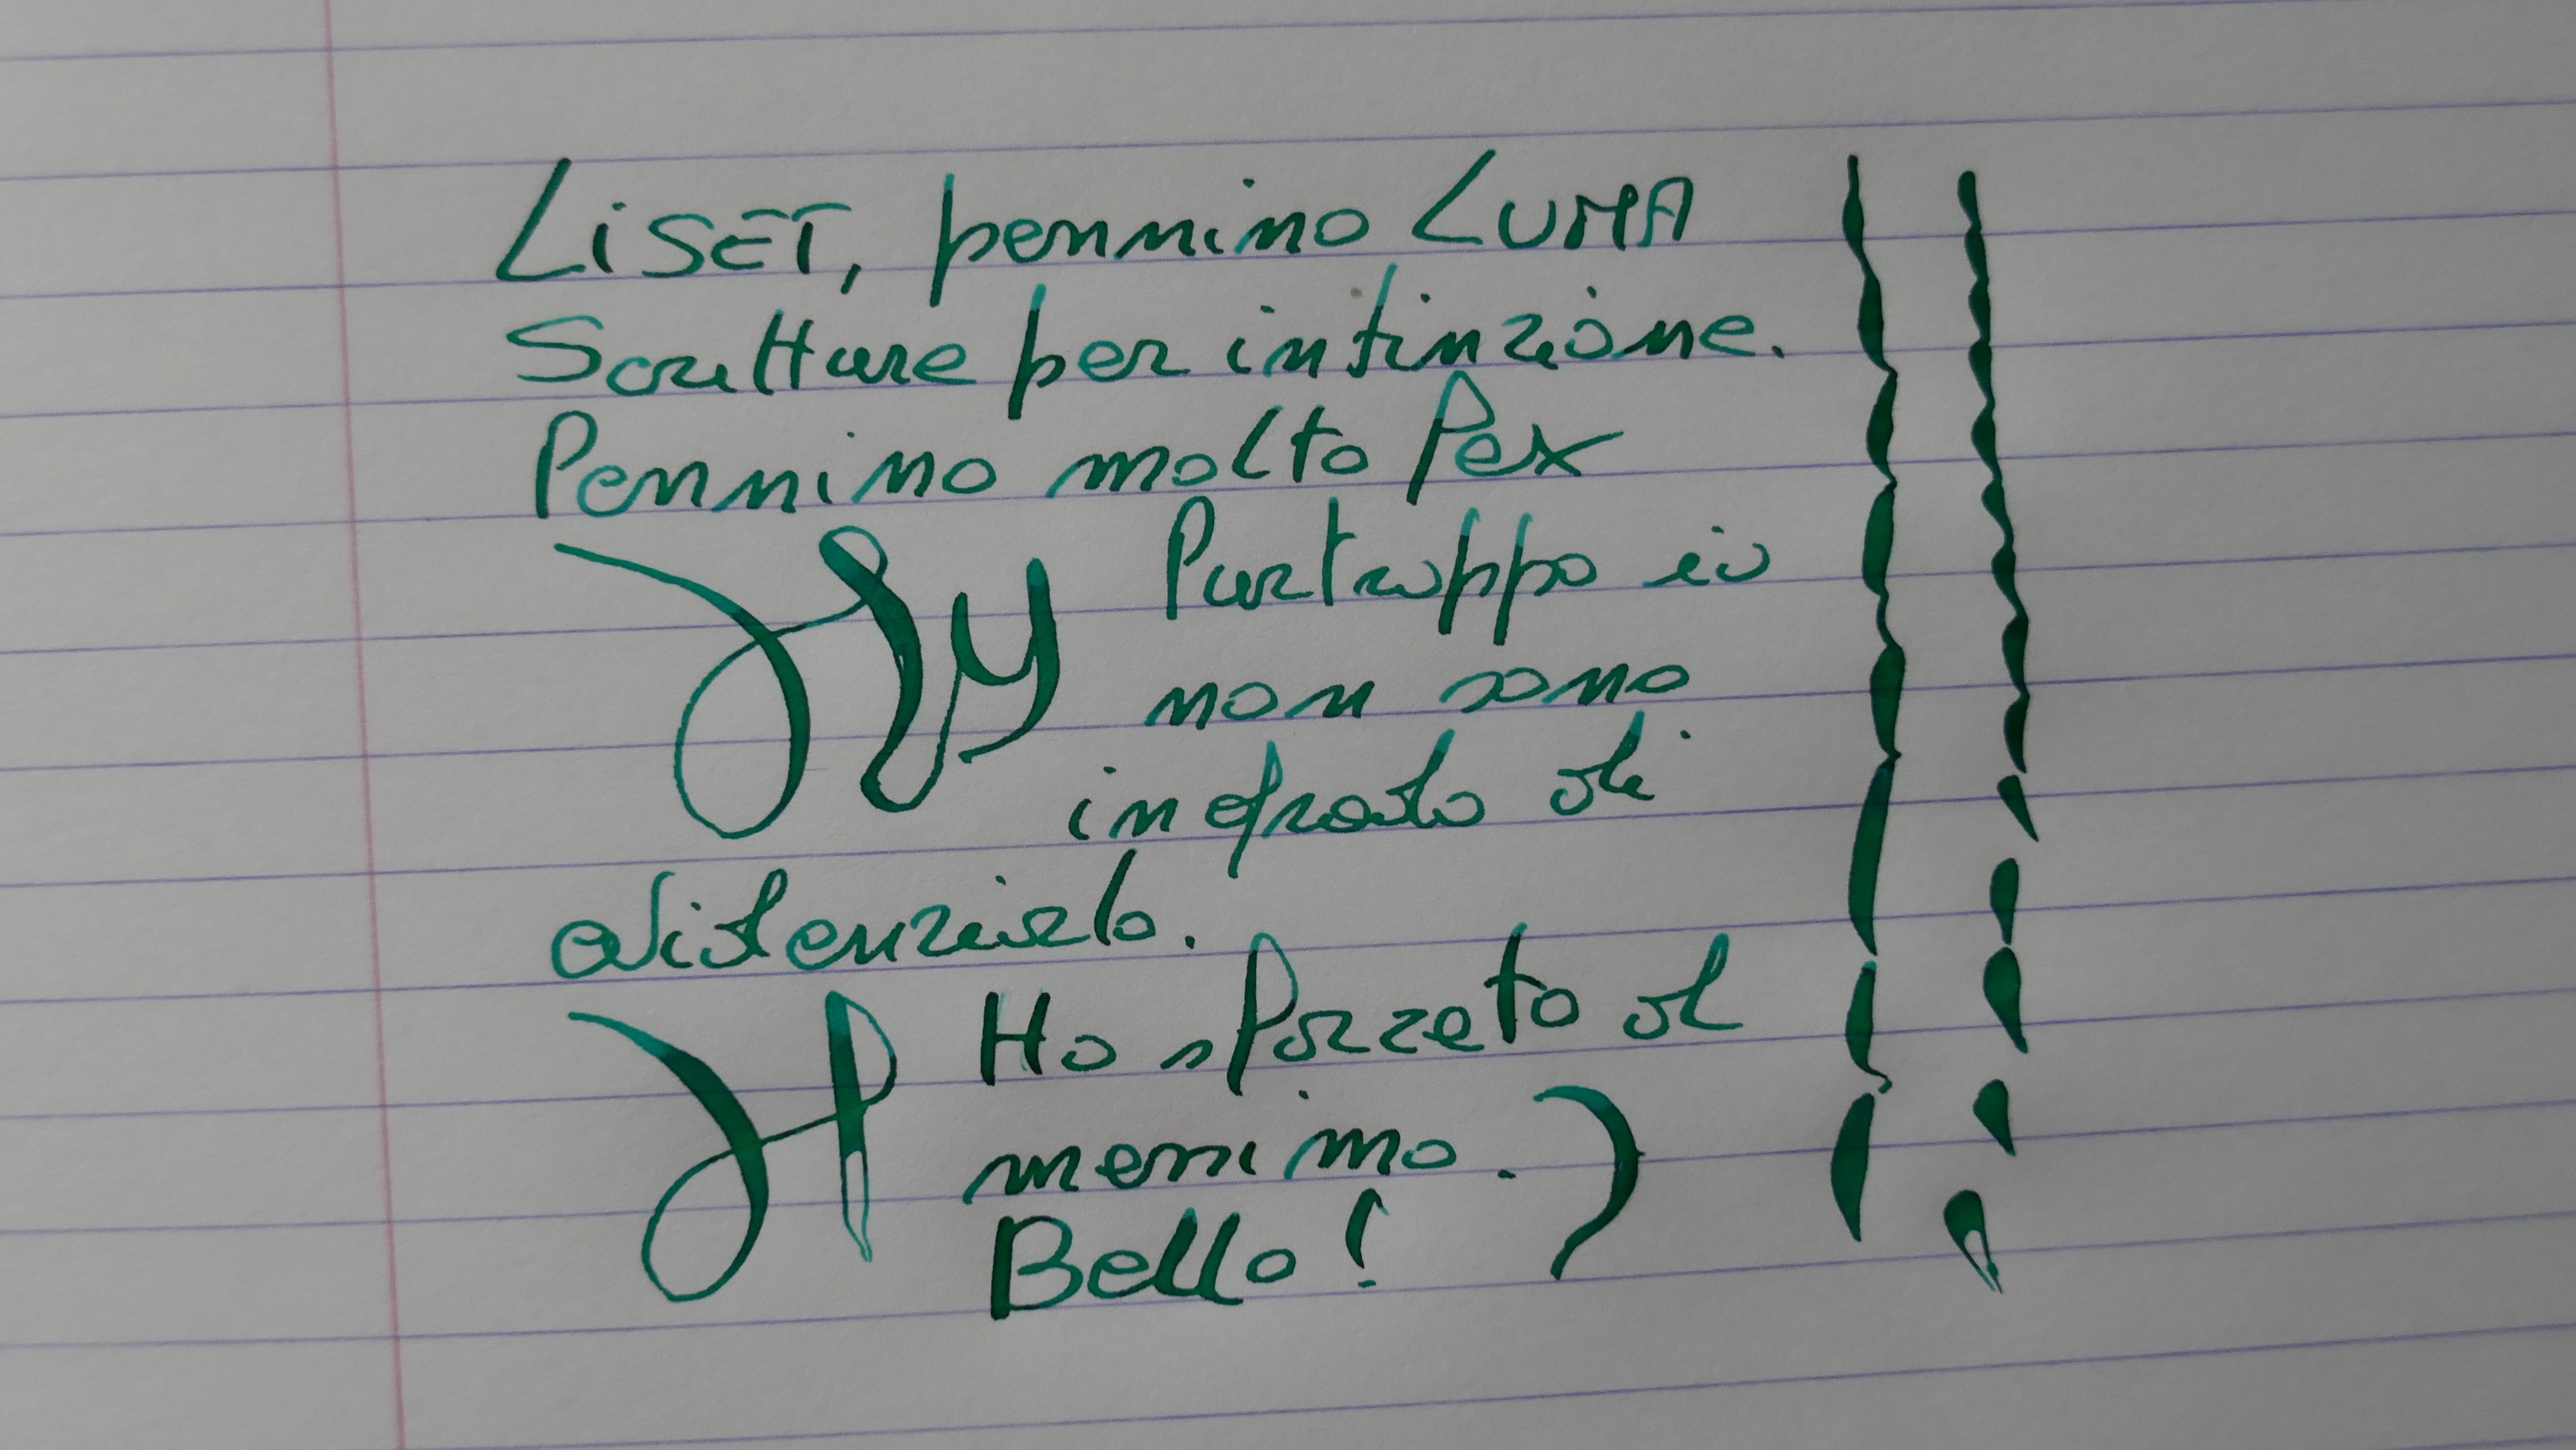 LiSET, pennino LUMA
Scritture per intinzione.
Pennino molto flex
Purtroppo io
non sono
in grado di
evidenziarlo.
Ho sforzato al
minimo.
Bello!